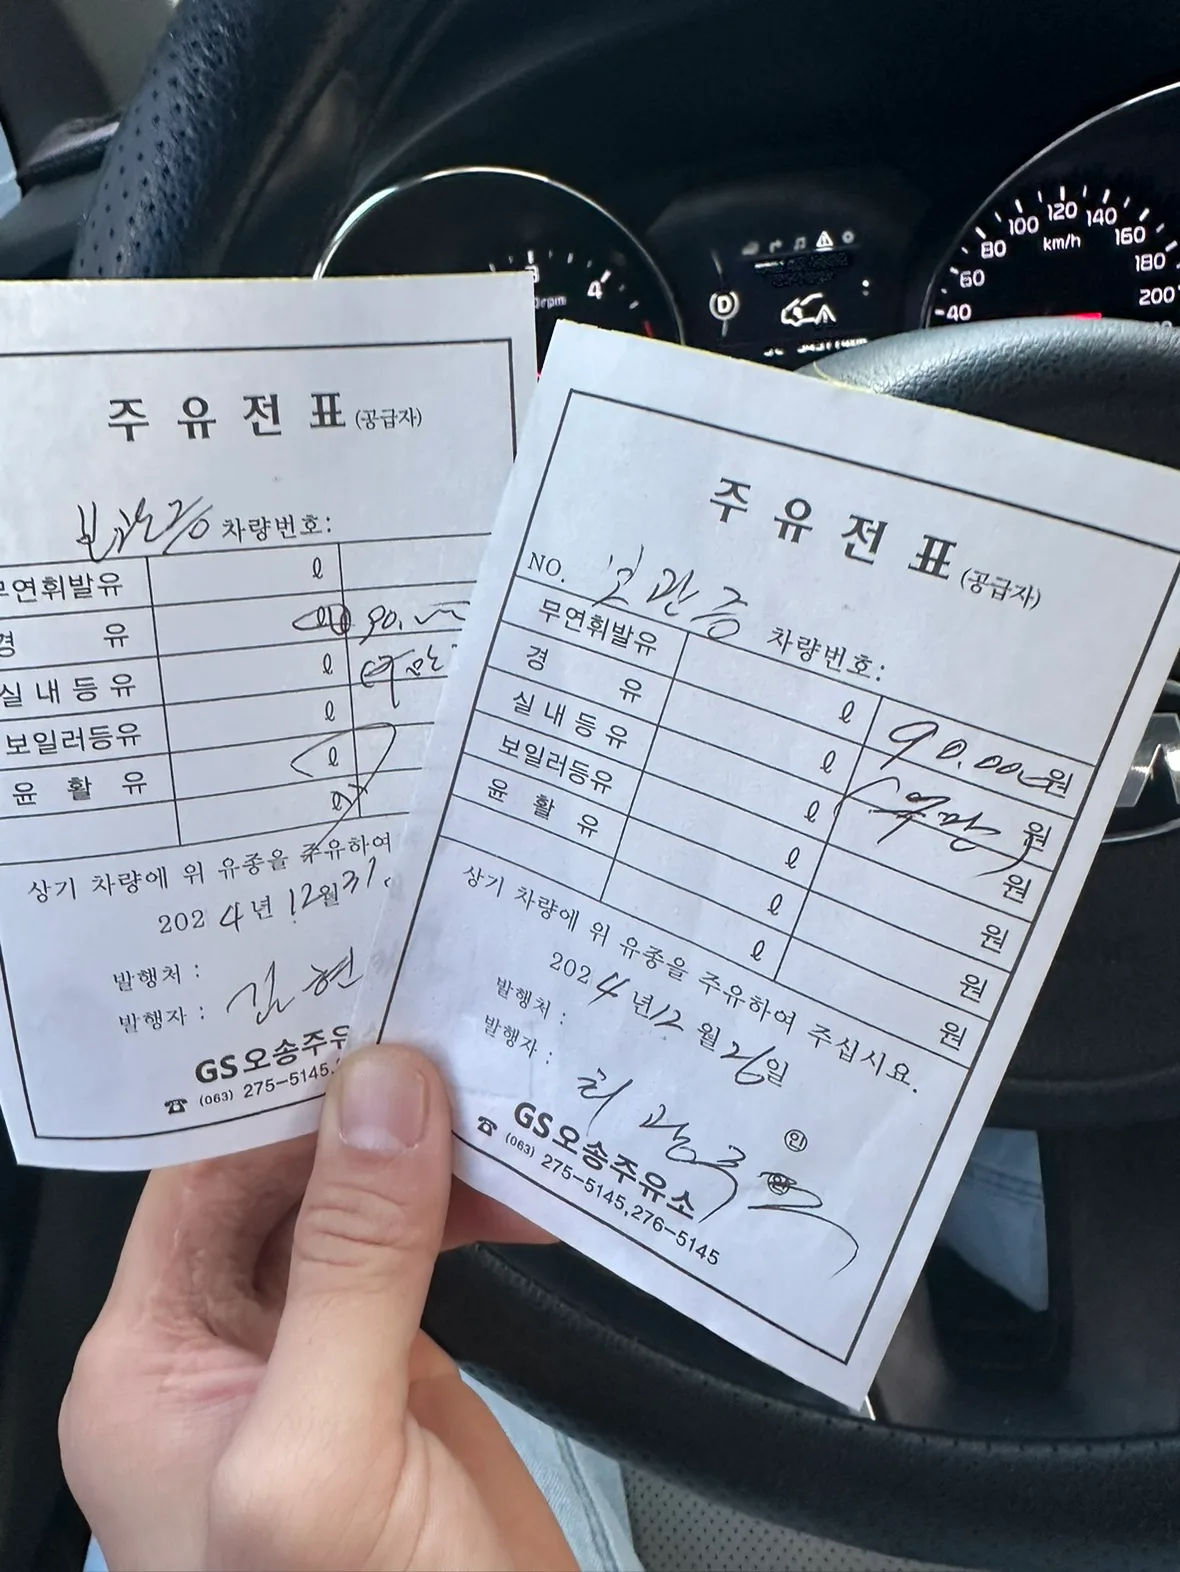 주유전표 (공급자)
보관증 차량번호:
무연휘발유 ℓ
경 유 ℓ 90.
실내등유 ℓ
보일러등유 ℓ
윤활유 ℓ
ℓ
상기 차량에 위 유종을 주유하여
2024년 12월 31.
발행처 :
발행자 : 김현
GS오송주유
☎ (063) 275-5145,
주유전표 (공급자)
NO. 보관증 차량번호:
무연휘발유 ℓ 90.000원
경 유 ℓ 원
실내등유 ℓ 원
보일러등유 ℓ 원
윤활유 ℓ 원
ℓ 원
상기 차량에 위 유종을 주유하여 주십시요.
2024년 12월 26일
발행처 :
발행자 :
인
GS오송주유소
☎ (063) 275-5145, 276-5145
4
D
40 60 80 100 120 140 160 180 200
km/h